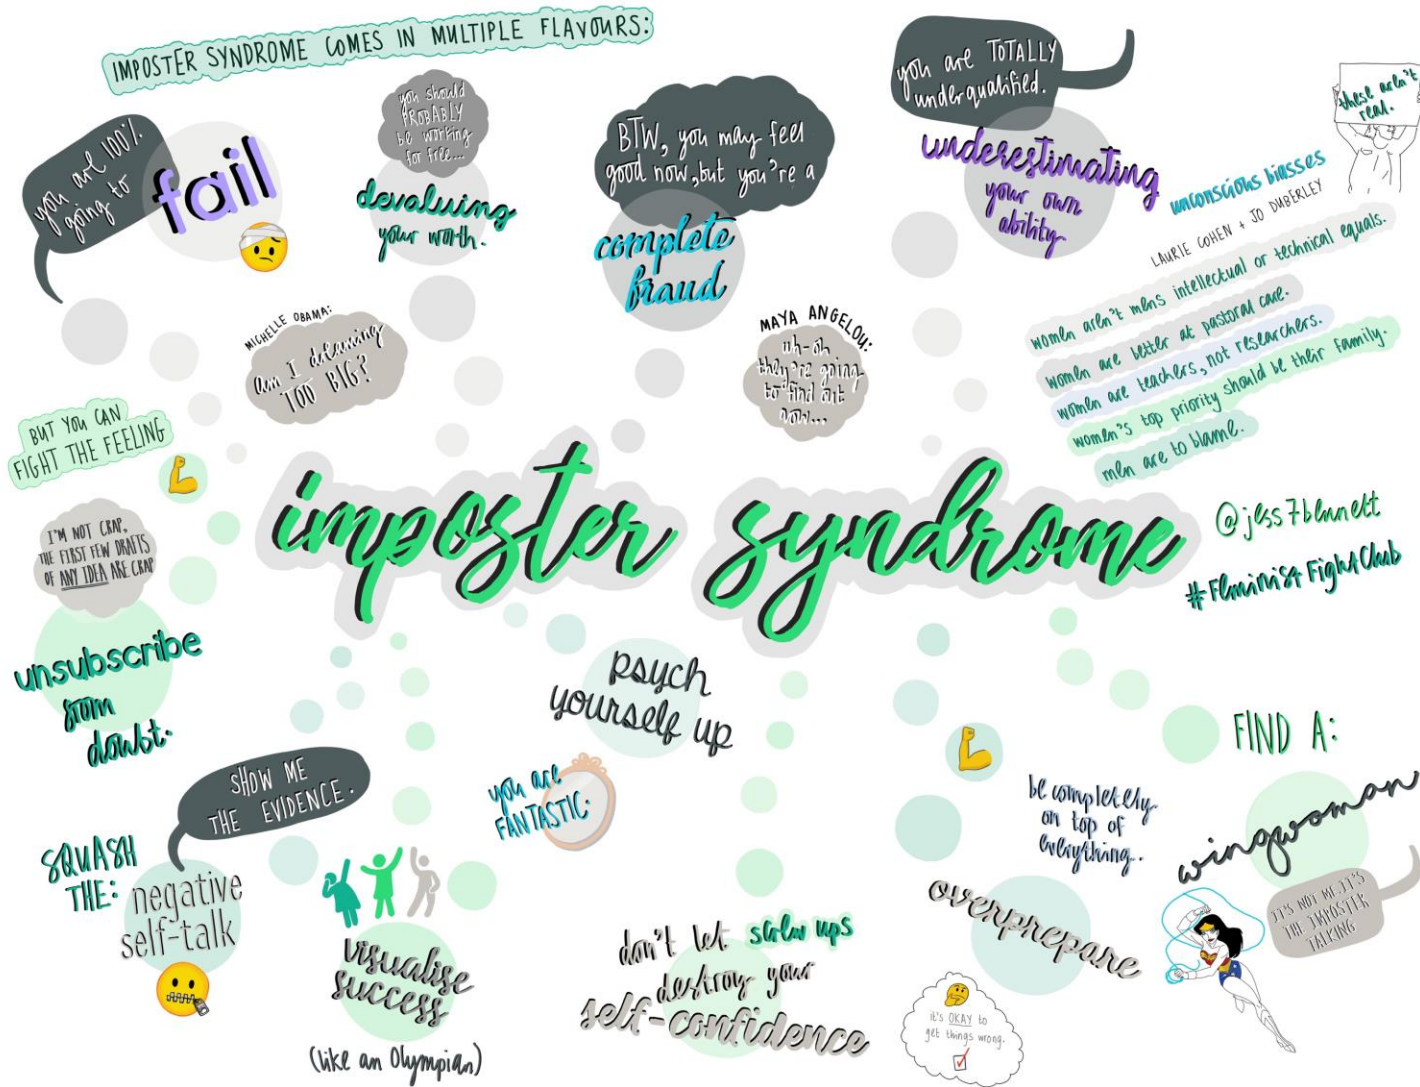 IMPOSTER SYNDROME COMES IN MULTIPLE FLAVOURS:
you are 100%
going to
fail
you should
PROBABLY
be working
for free...
devaluing
your worth.
BTW, you may feel
good now, but you're a
complete
fraud
you are TOTALLY
underqualified.
underestimating
your own
ability
these aren't
real.
unconscious biasses
LAURIE COHEN + JO DUBERLEY
women aren't mens intellectual or technical equals.
women are better at pastoral care.
women are teachers, not researchers.
women's top priority should be their family.
men are to blame.
MICHELLE OBAMA:
am I dreaming
TOO BIG?
MAYA ANGELOU:
uh-oh
they're going
to find out
now...
imposter syndrome
@jess7bennett
#FeministFightClub
BUT YOU CAN
FIGHT THE FEELING
I'M NOT CRAP,
THE FIRST FEW DRAFTS
OF ANY IDEA ARE CRAP
unsubscribe
from
doubt.
psych
yourself up
you are
FANTASTIC.
SHOW ME
THE EVIDENCE.
SQUASH
THE:
negative
self-talk
visualise
success
(like an Olympian)
don't let screw ups
destroy your
self-confidence
be completely
on top of
everything.
overprepare
it's OKAY to
get things wrong.
FIND A:
wingwoman
IT'S NOT ME, IT'S
THE IMPOSTER
TALKING